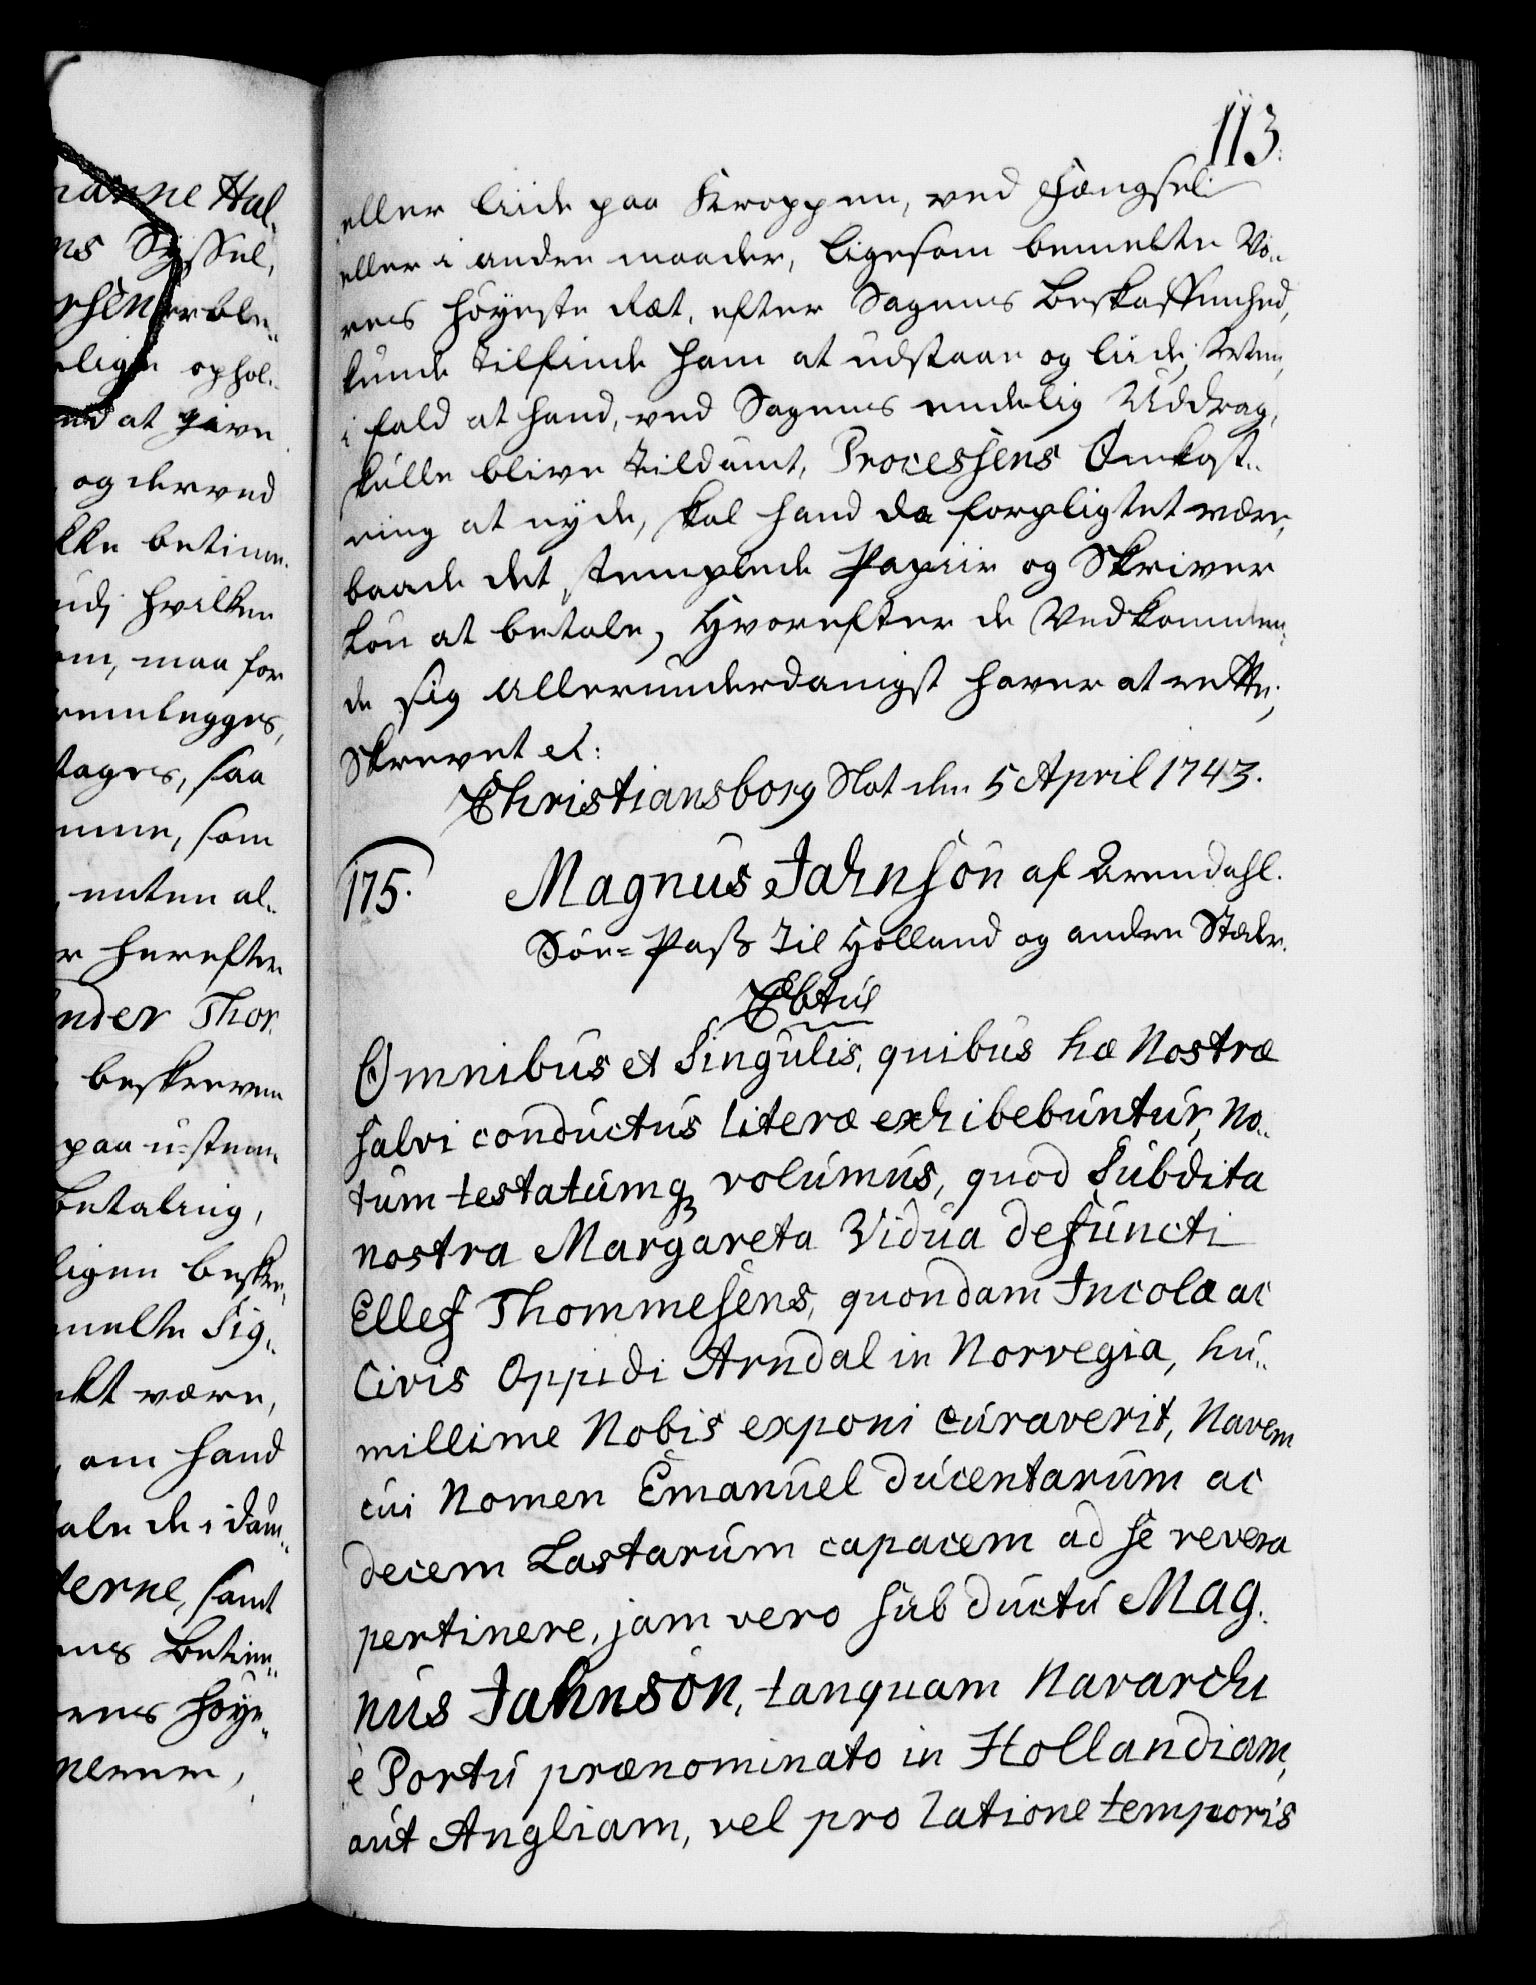 113.
eller liide paa Kroppen, ved Fængsel
eller i andre maader, ligesom bemelte Vo-
res Höyeste Ræt, efter Sagens Beskaffenhed,
kunde tilfinde ham at udstaae og liide; Men,
i fald at hand, ved Sagens endelig Uddrag,
skulle blive tildömt, Processens Omkost-
ning at nyde, skal hand da forpligtet være,
baade det stemplede Papiir og Skriver
Lön at betale, Hvorefter de Vedkommen-
de sig allerunderdanigst haver at rette,
Skrevet et:
Christiansborg Slot den 5 April 1743.
175. Magnus Jahnson af Arendahl.
Söe-Pass til Holland og andre Stæder.
Omnibus et Singulis, quibus hæ Nostræ
salvi conductus literæ exhibebuntur, No-
tum testatumq volumus, quod Subdita
nostra Margareta Vidua defuncti
Ellef Thommesens, quondam Incolæ ac
Civis Oppidi Arndal in Norvegia, hu-
millime Nobis exponi curaverit, Navem
cui Nomen Emanuel ducentarum ac
decem Lastarum capacem ad se revera
pertinere, jam vero sub ductu Mag-
nus Jahnson, tanquam Navarchi
è Portu prænominato in Hollandiam,
aut Angliam, vel pro ratione temporis
anne Hal-
ns Syssel,
ophol-
at give
og derved
ikke betimm-
udj hvilken
om, maa for
fremlegges,
tages, saa
som
enten al-
r herefter
nder Thor-
beskreven
paa u-stem-
betaling,
ligen beskre-
melte Sig-
være,
om hand
tale de i dom-
terne, samt
ens Betien-
eres Höye-